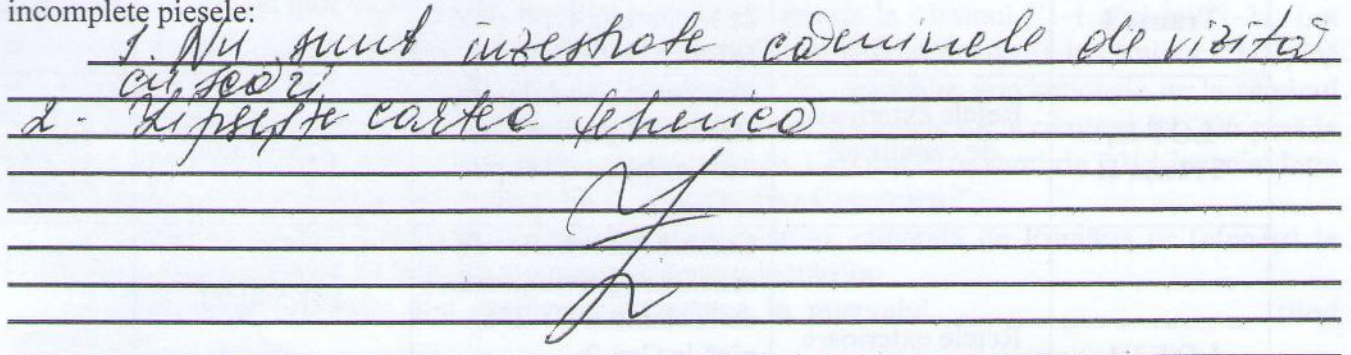 incomplete piesele:
1. Nu sunt înzestrate căminele de vizită
cu scări
2. Lipsește cartea tehnică